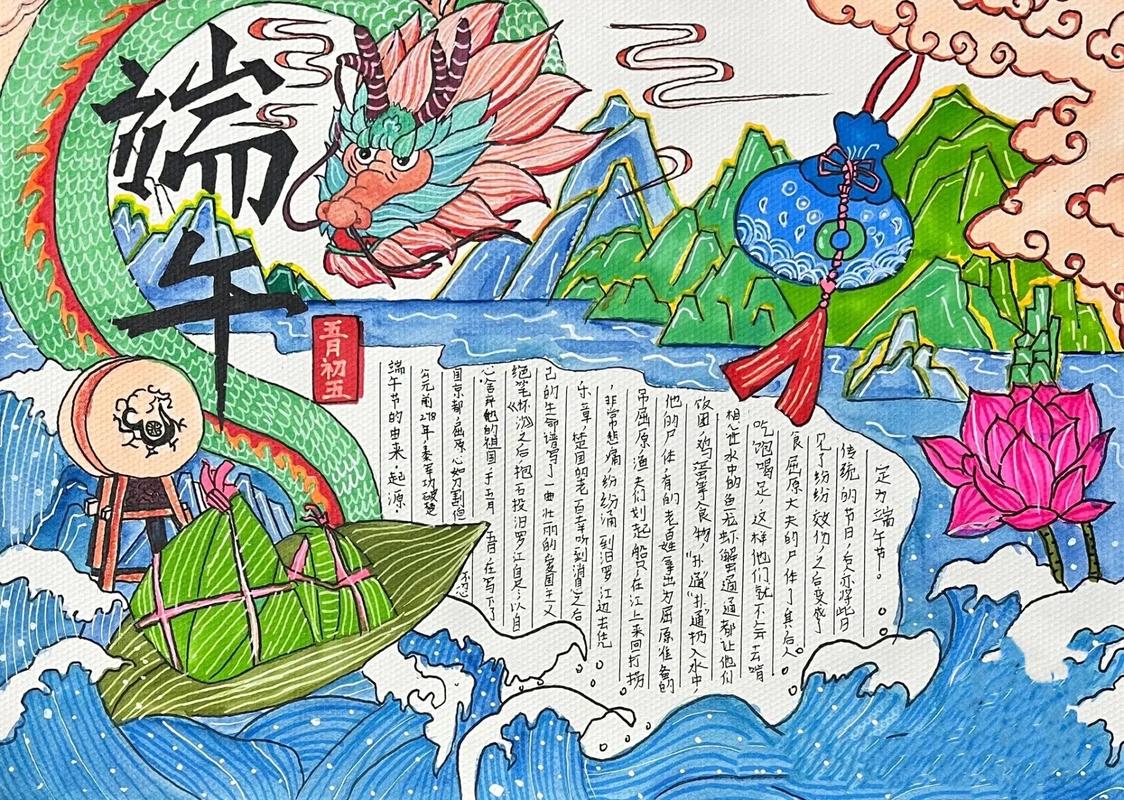 端午
五月初五
端午节的由来 起源
公元前278年秦军攻破楚
国京都,屈原心如分割但不忍
心舍弃她的祖国于五月 在写下了
绝笔《怀沙》之后,抱石投汨罗江自尽,以自
己的生命谱写了一曲壮丽的爱国主义
乐章,楚国的老百姓听到消息之后
非常悲痛,纷纷涌到汨罗江边去凭
吊屈原,渔夫们划起船只,在江上来回打捞
他的尸体,有的老百姓拿出为屈原准备的
饭团,鸡蛋等食物,"扑通""扑通"扔入水中,
想让水中的鱼龙虾蟹通通都让他们
吃饱喝足,这样他们就不会去啃
食屈原大夫的尸体了,其后人
见了纷纷效仿,之后变成了
传统的节日,人亦将此日
定为端午节。